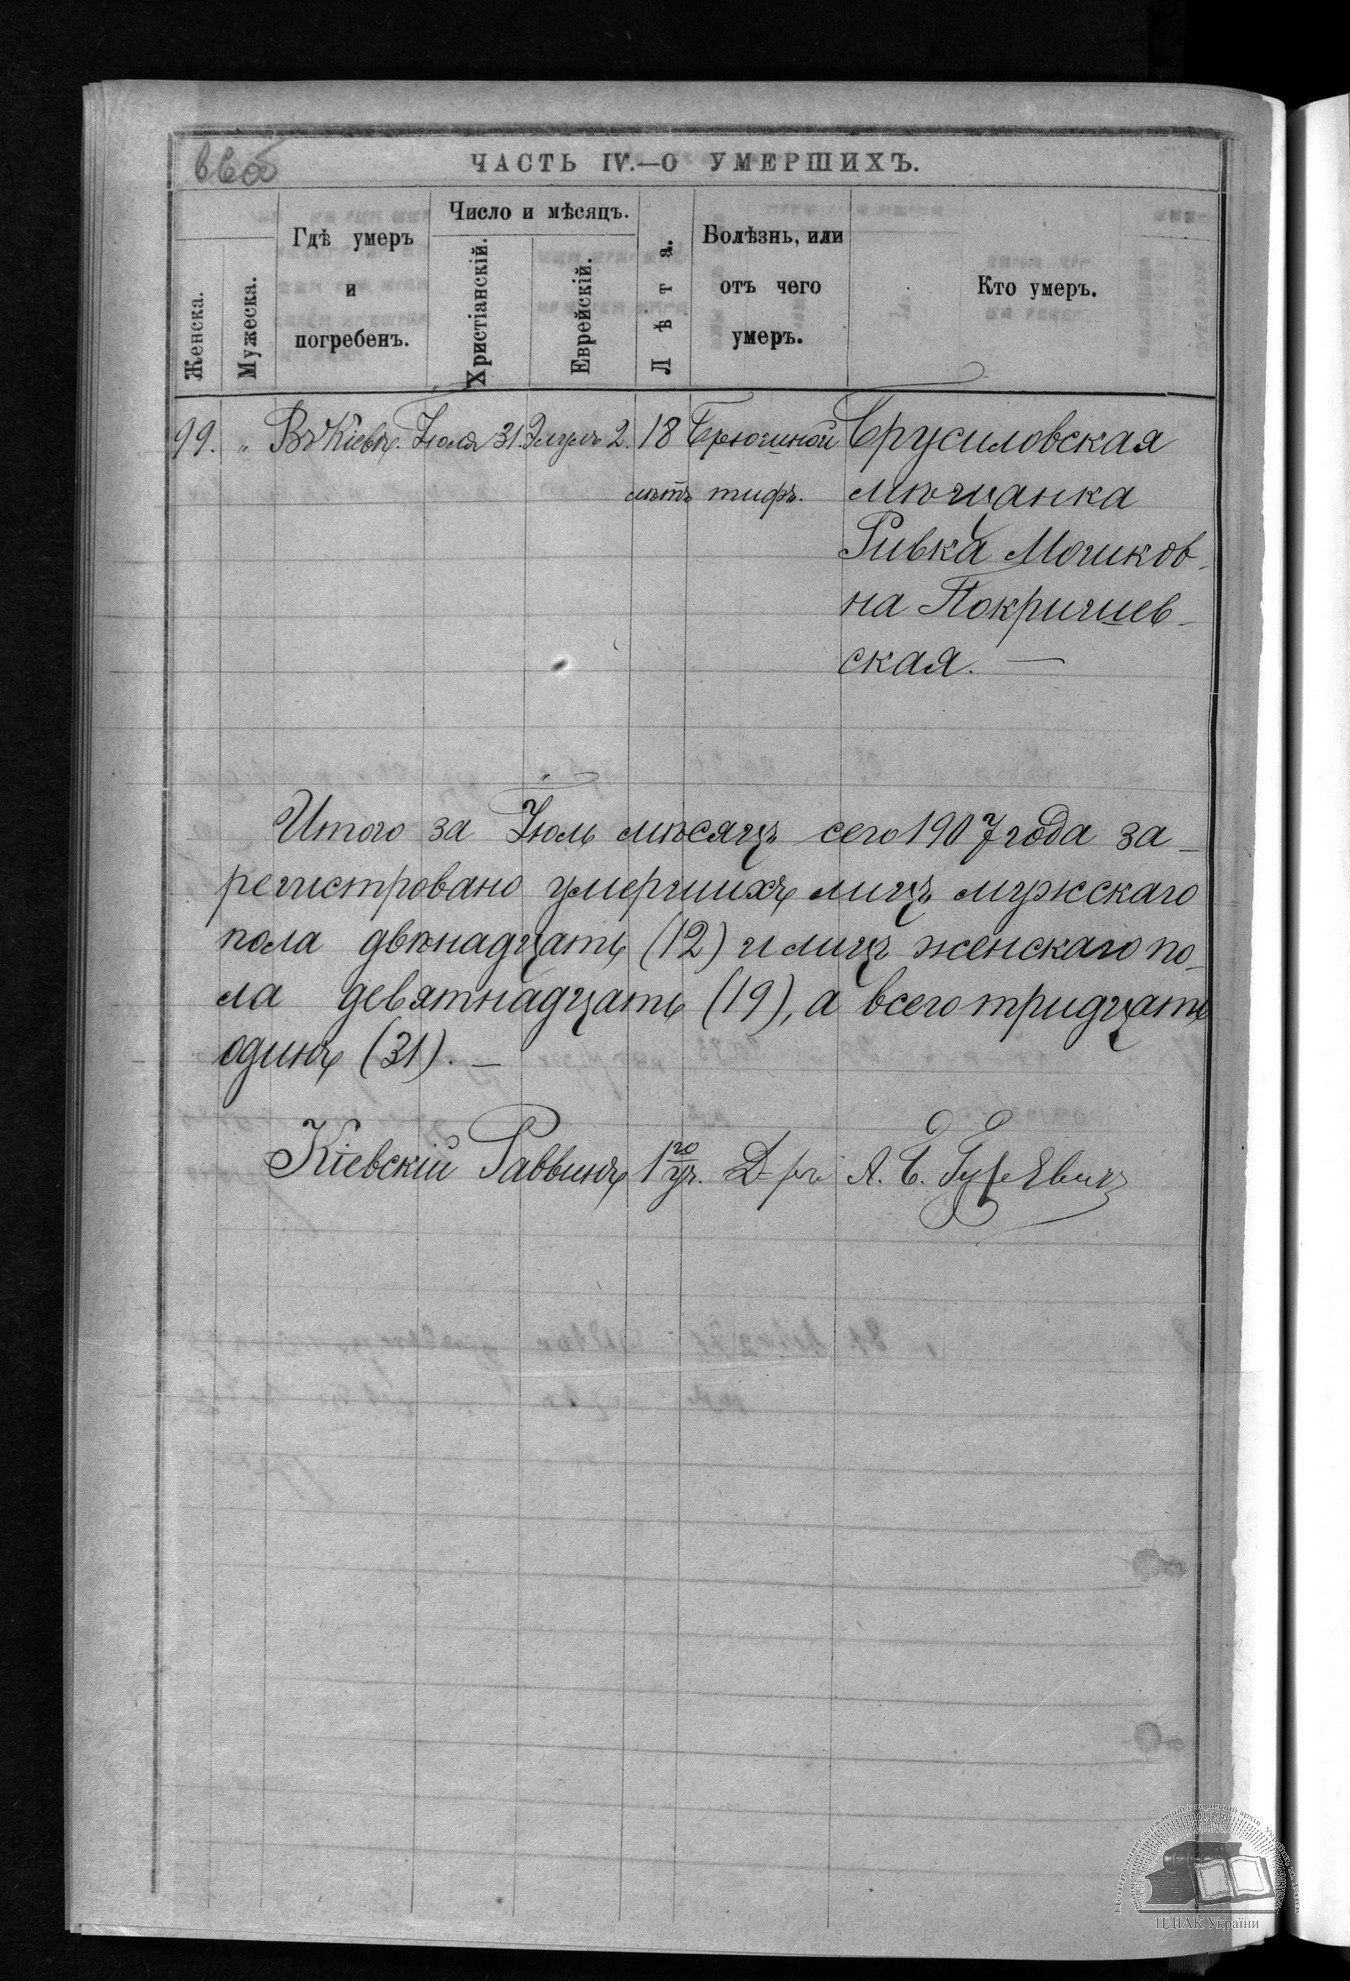 ЧАСТЬ IV.—О УМЕРШИХЪ.
Женска.
Мужеска.
Гдѣ умеръ
и
погребенъ.
Число и мѣсяцъ.
Христіанскій.
Еврейскій.
Лѣта.
Болѣзнь, или
отъ чего
умеръ.
Кто умеръ.
99. " Въ Кіевѣ. Іюля 31. Элулъ 2. 18 Брюшной Брусиловская
лѣтъ тифъ. мѣщанка
Ривка Мошков-
на Покришев-
ская. —
Итого за Іюль мѣсяцъ сего 1907 года за-
регистровано умершихъ лицъ мужскаго
пола двѣнадцать (12) и лицъ женскаго по-
ла девятнадцать (19), а всего тридцать
одинъ (31). —
Кіевскій Раввинъ 1го уч. Д-ръ А. Б. Гуревичъ
ЦДІАК України